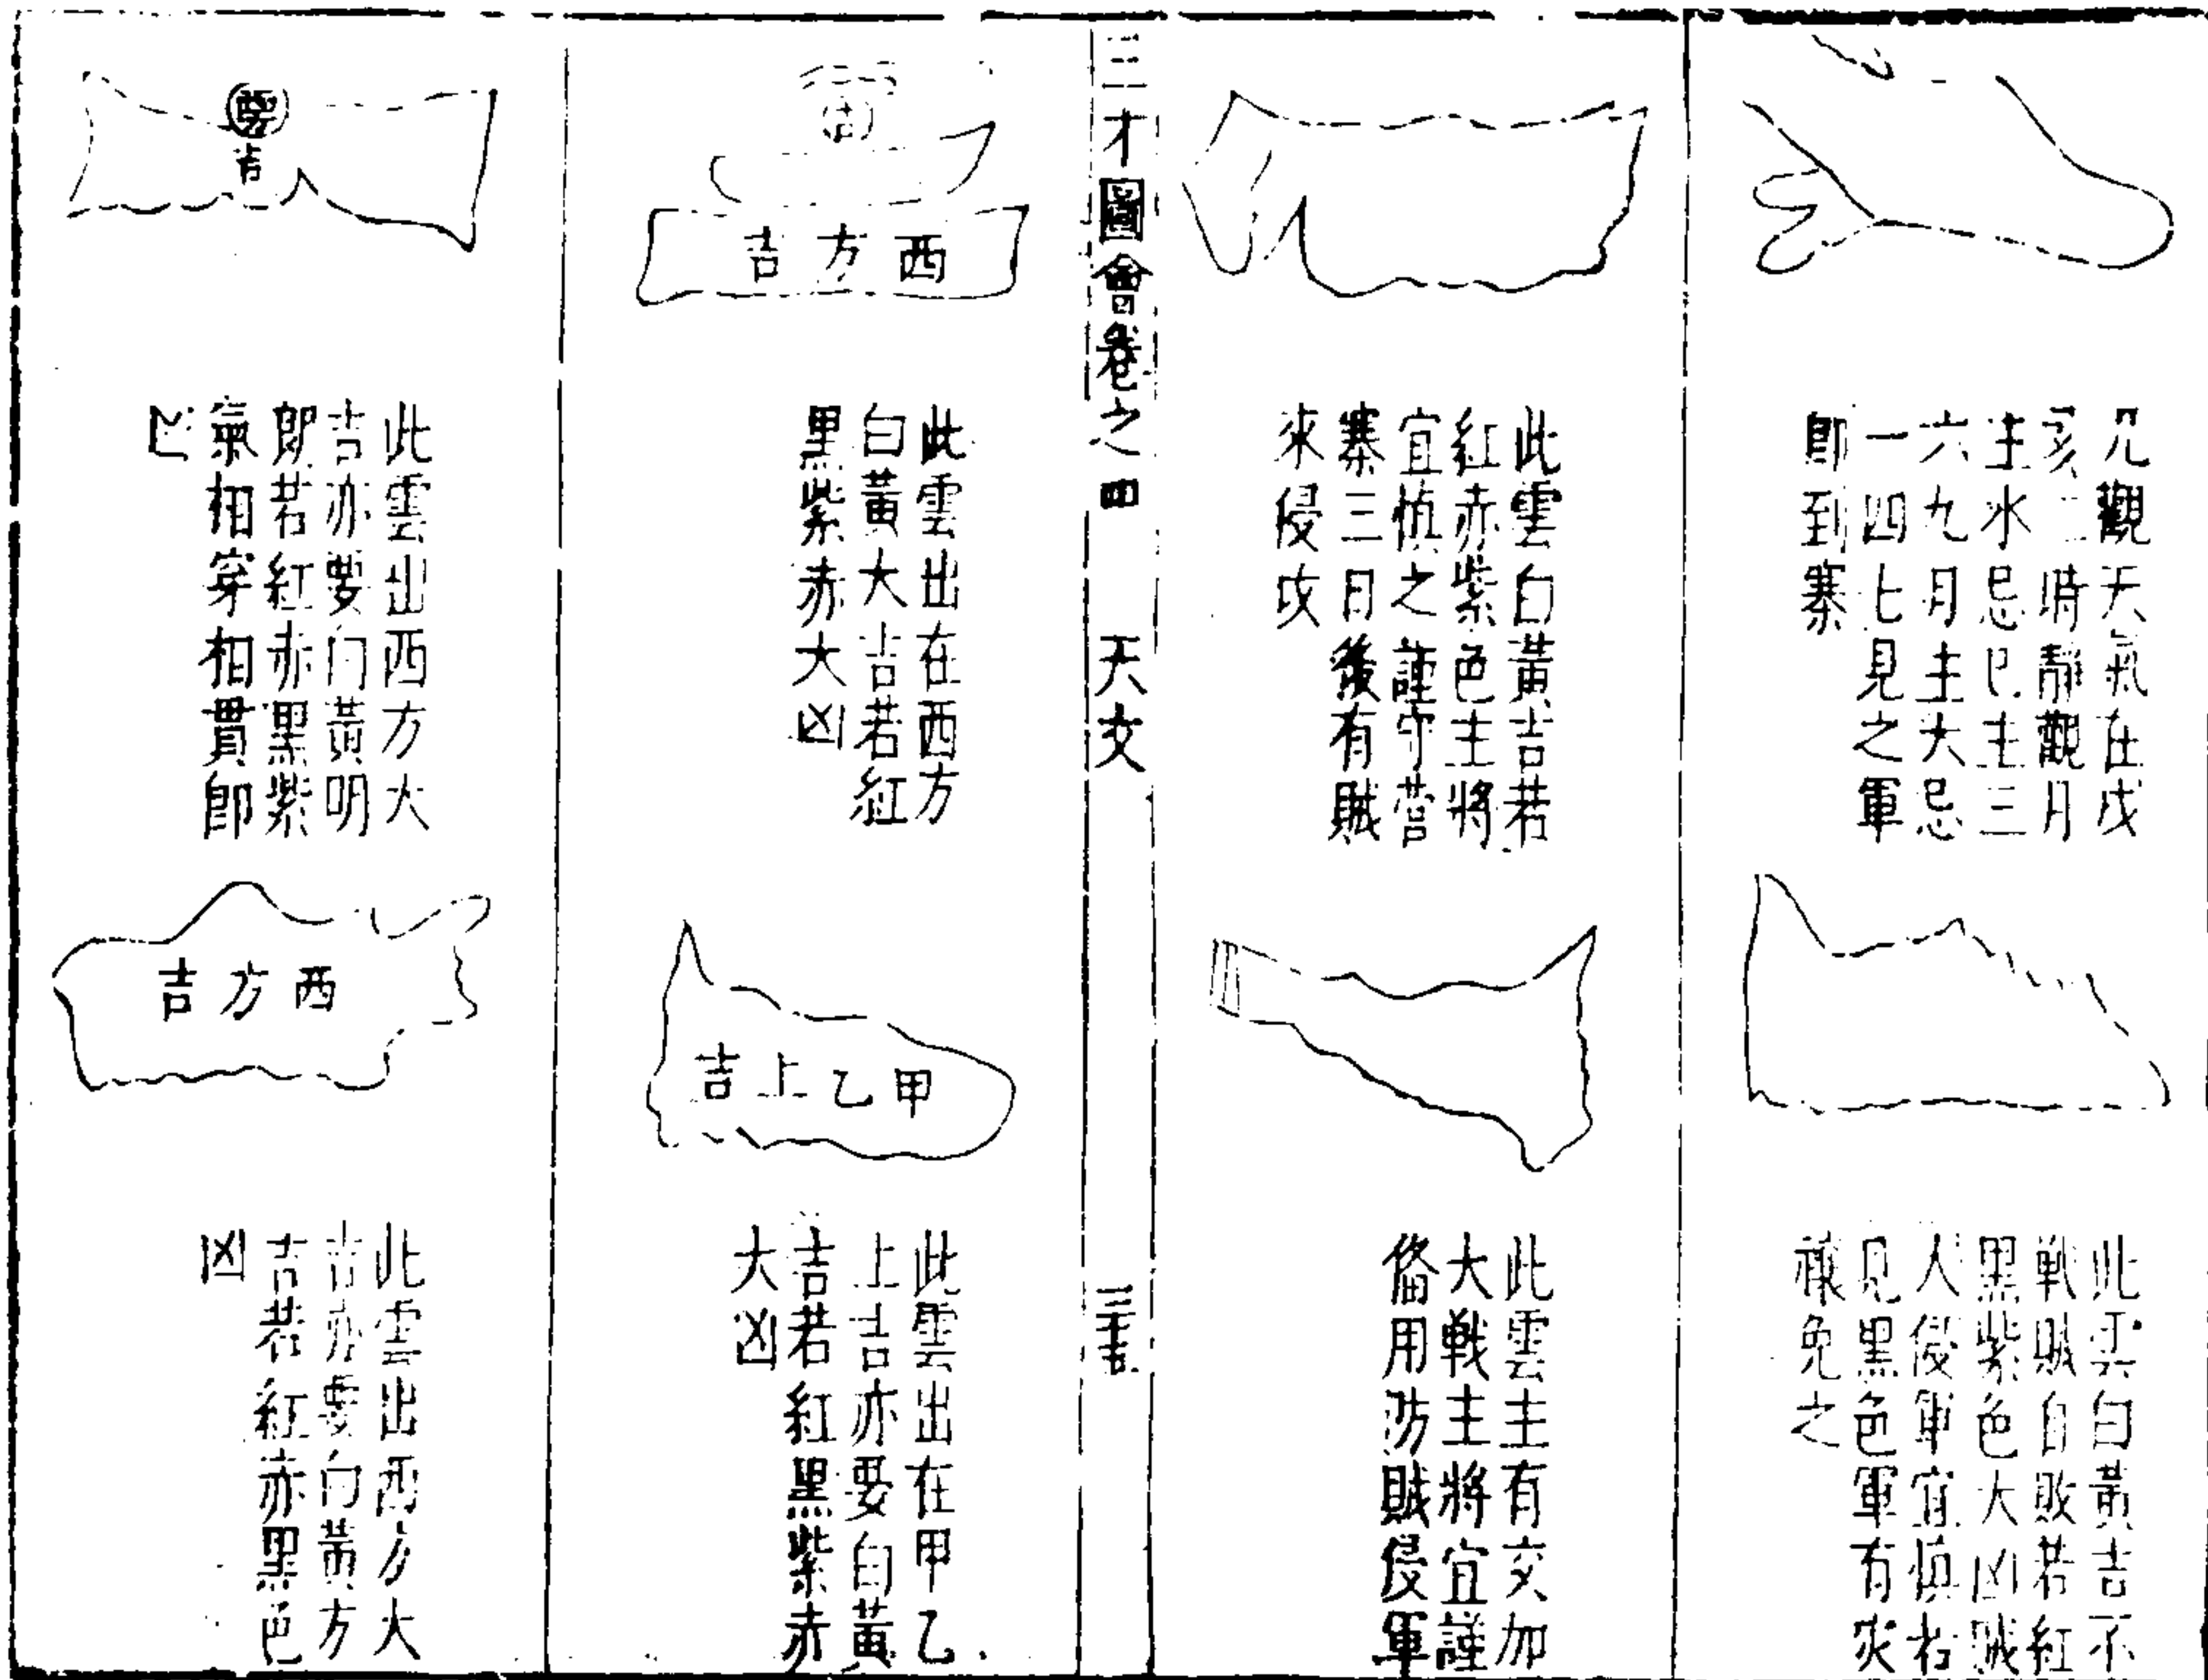 凡觀天氣在戌
亥二時靜觀月
主水忌巳主三
六九月主大忌
一四七見之軍
即到寨
此雲白黃吉不
戰賊自敗若紅
黑紫色大凶賊
人侵軍宜慎若
見黑色軍有灾
禳免之
此雲白黃吉若
紅赤紫色主將
宜慎之謹守營
寨三日後有賊
來侵攻
此雲主有交加
大戰主將宜謹
俻用防賊侵軍
三才圖會卷之四 天文
西方吉
此雲出在西方
白黃大吉若紅
黑紫赤大凶
甲乙上吉
此雲出在甲乙
上吉亦要白黃
吉若紅黑紫赤
大凶
吉
此雲出西方大
吉亦要白黃明
郎若紅赤黑紫
氣相穿相貫即
凶
西方吉
此雲出西方大
吉亦要白黃方
吉若紅赤黑色
凶